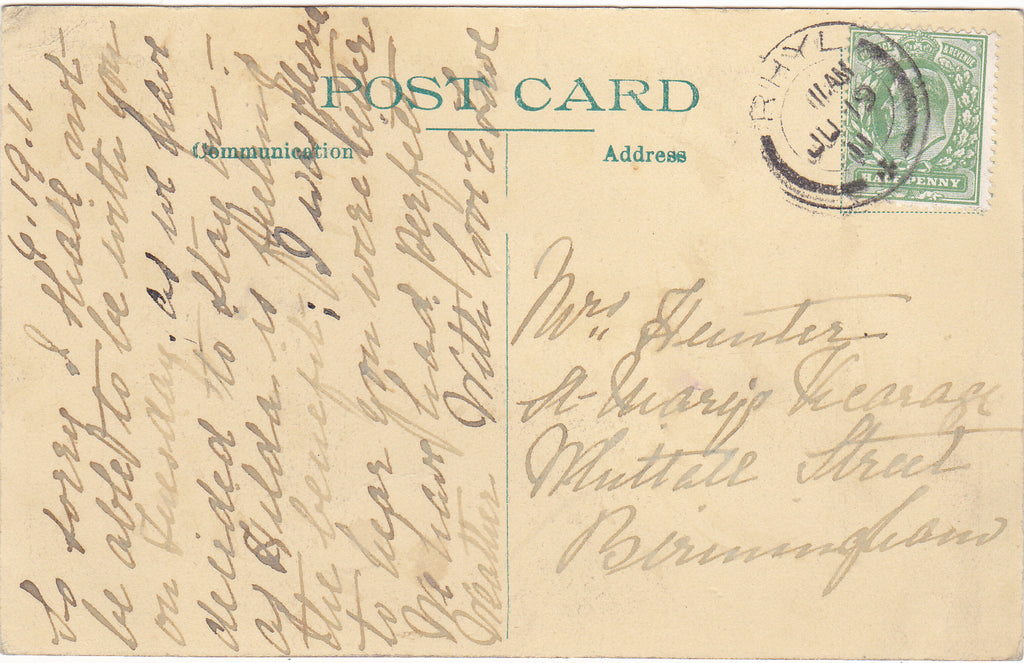 POST CARD
Communication
Address
RHYL
11 AM
JU 19
11
HALFPENNY
19.11
So sorry I shall not
be able to be with you
on Tuesday. as we have
decided to stay on -
as Hilda is feeling
the benefit; I was pleased
to hear you were better
We have had perfect
weather With love
Mrs. Hunter
St Mary's Vicarage
Whittall Street
Birmingham